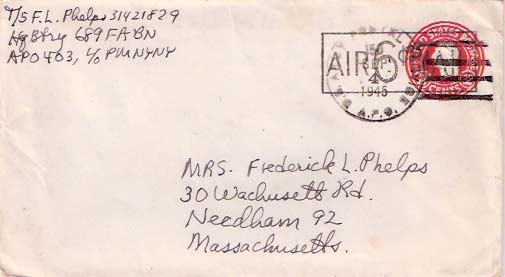 T/5 F.L. Phelps 31421829
Hq Btry 689 FA BN
APO 403, c/o PM NYNY
AIR 6¢
SEP
4
1945
U.S. A.P.O.
UNITED STATES POSTAGE
CENTS
MRS. Frederick L. Phelps
30 Wachusett Rd.
Needham 92
Massachusetts.